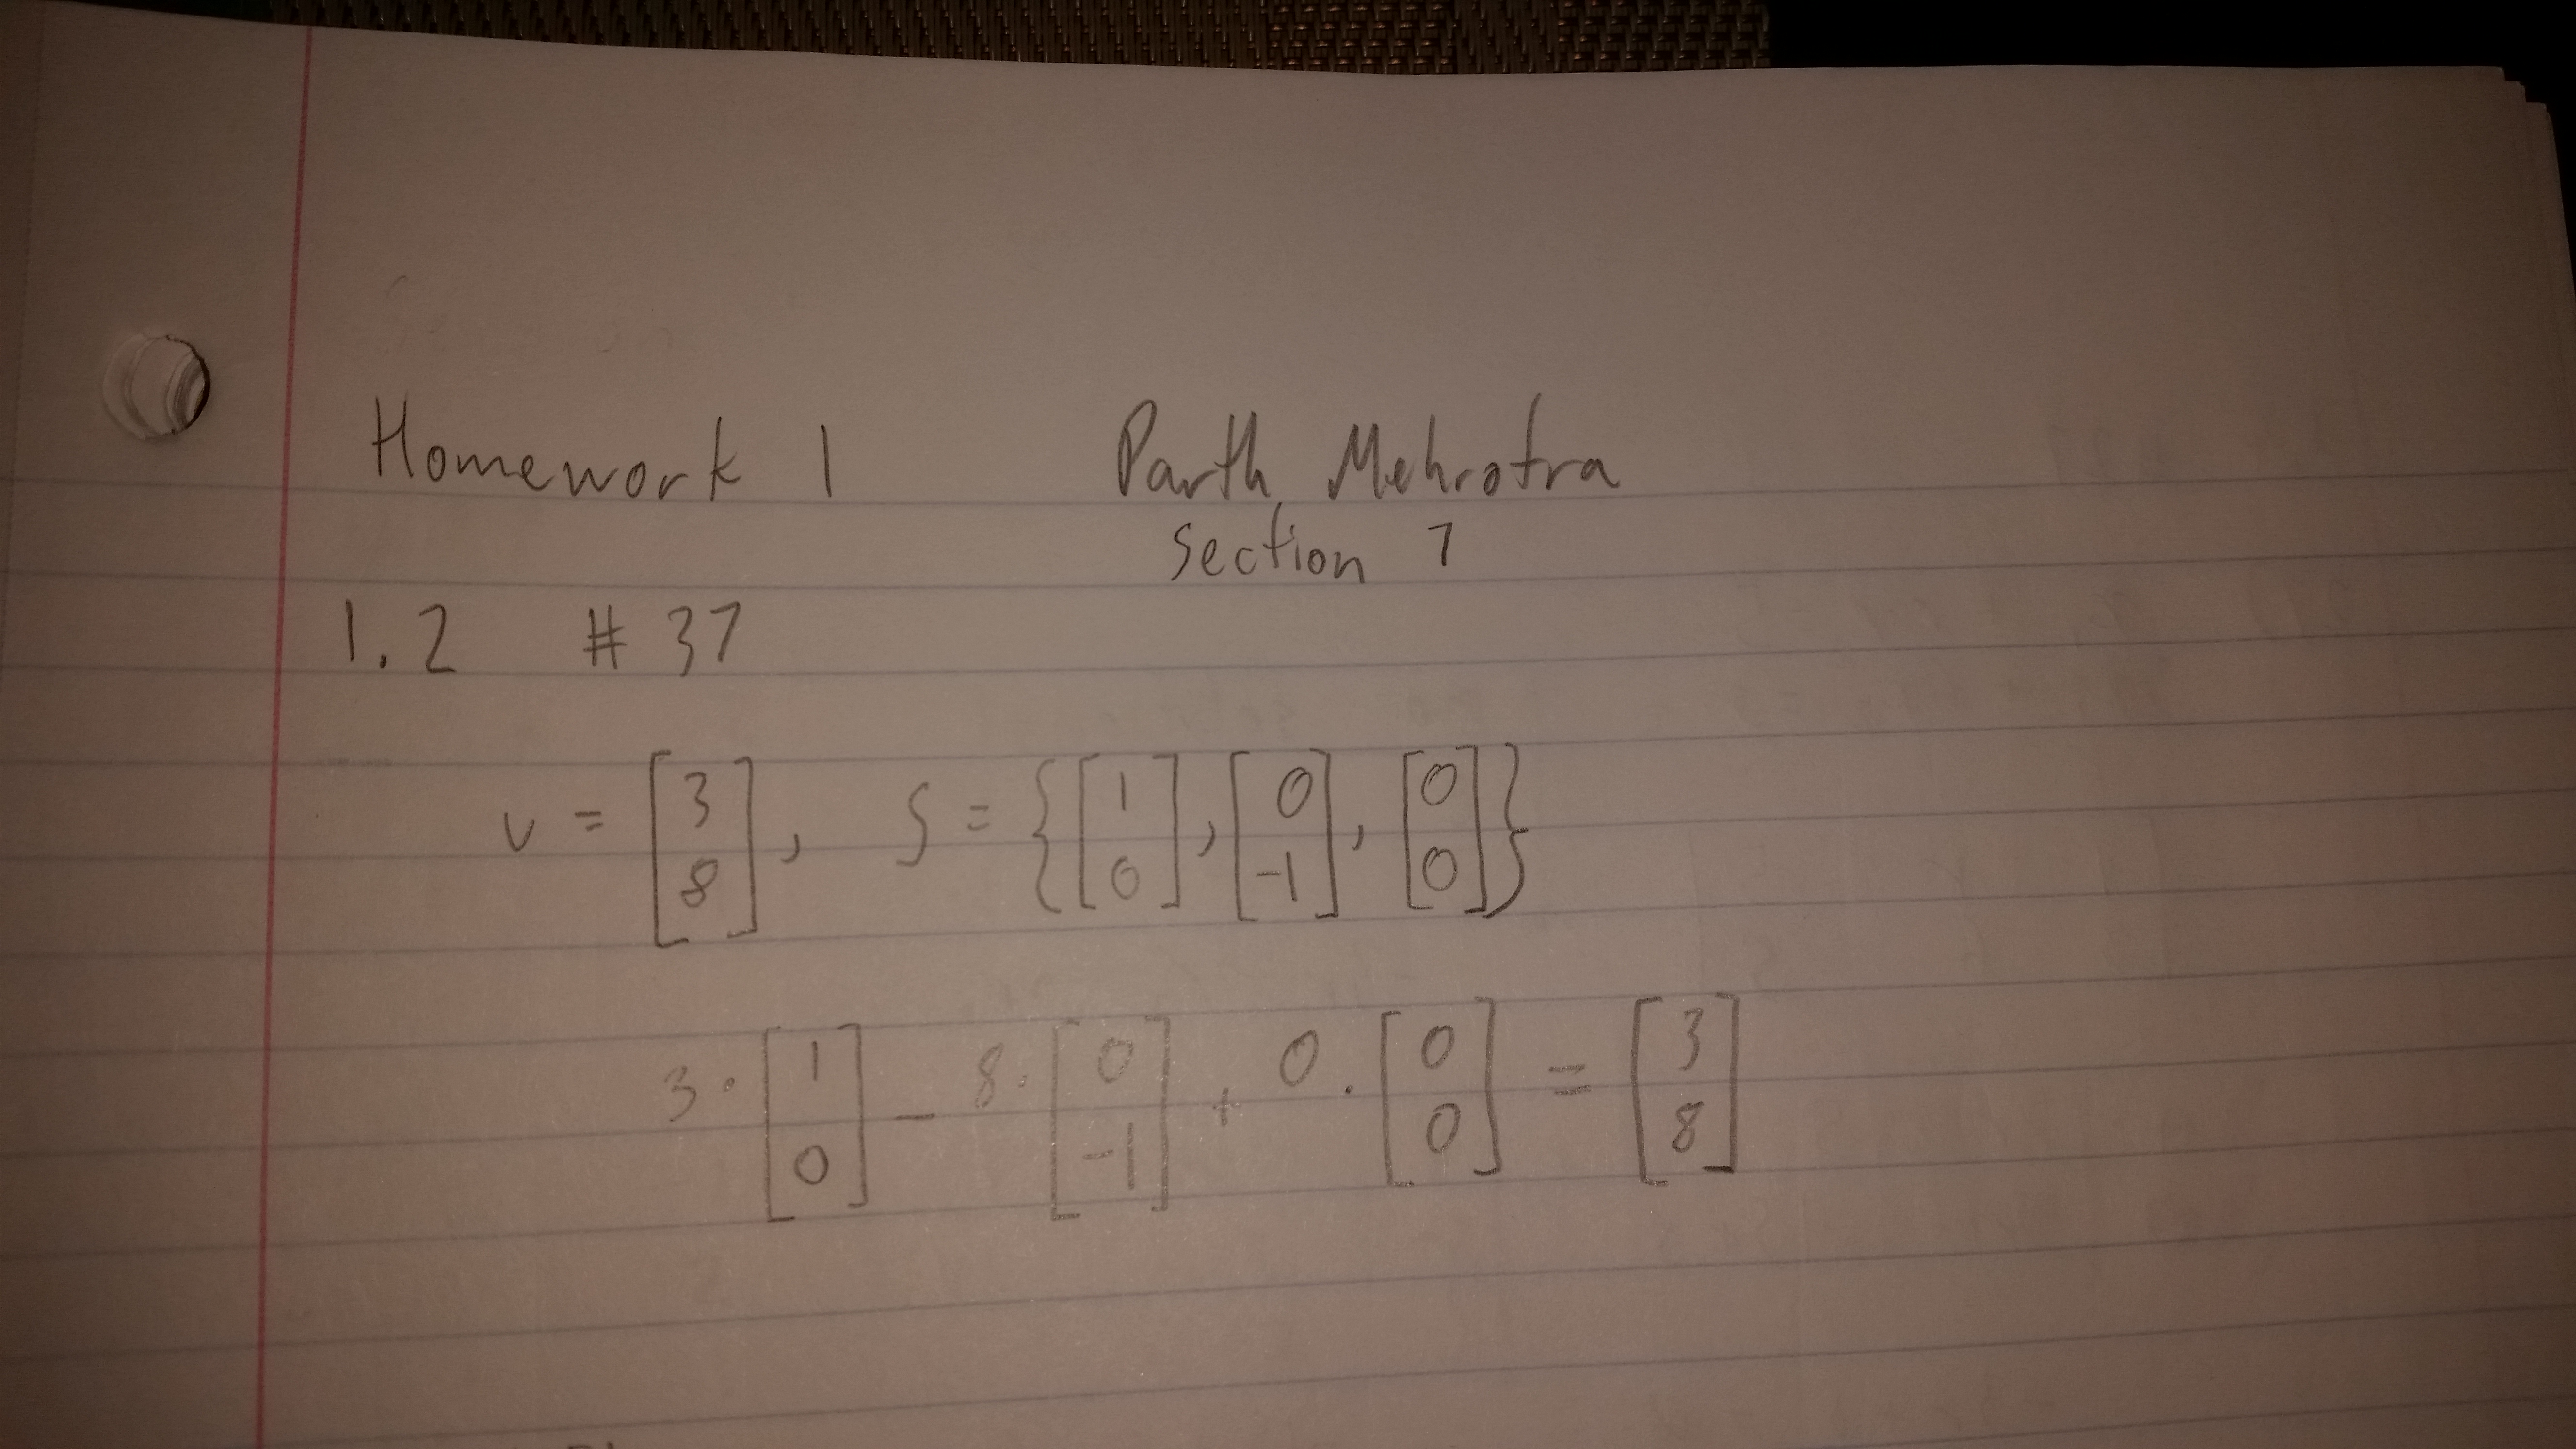 Homework 1 Parth Mehrotra
Section 7
1.2 # 37
v = [3 8], S = {[1 0], [0 -1], [0 0]}
3 · [1 0] - 8 · [0 -1] + 0 · [0 0] = [3 8]